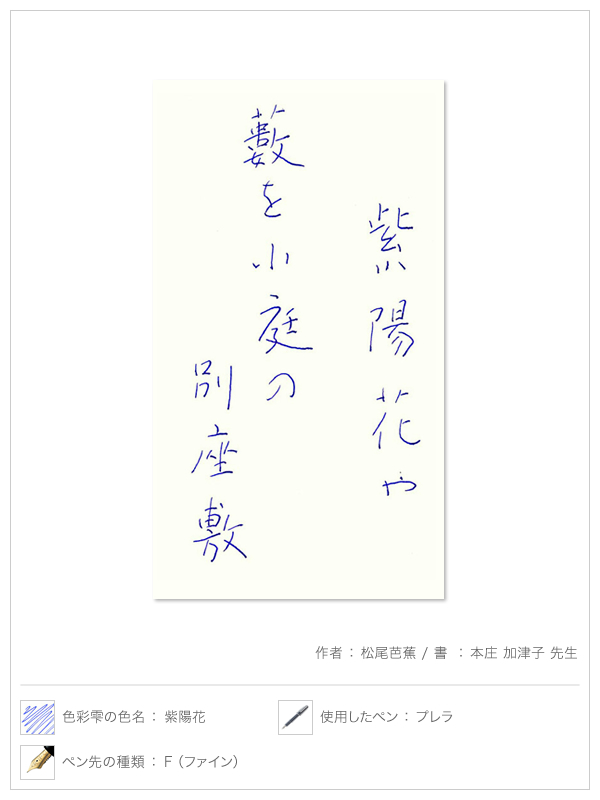 紫陽花や
藪を小庭の
別座敷
作者：松尾芭蕉 / 書 ：本庄 加津子 先生
色彩雫の色名：紫陽花
使用したペン：プレラ
ペン先の種類：F（ファイン）